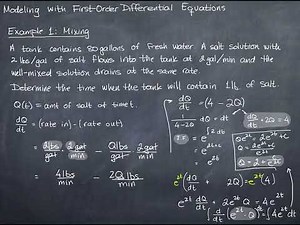 Modeling with First-Order Differential Equations
Example 1: Mixing
A tank contains 80 gallons of fresh water. A salt solution with
2 lbs/gal of salt flows into the tank at 2 gal/min and the
well-mixed solution drains at the same rate.
Determine the time when the tank will contain 1 lb. of salt.
Q(t) = amt of salt at time t.
dQ/dt = (rate in) - (rate out)
= 2lbs/gal · 2gal/min - Q lbs/gal · 2gal/min
= 4lbs/min - 2Q lbs/min
dQ/dt = (4 - 2Q)
dQ/dt + 2Q = 4
e^2t (dQ/dt + 2Q) = e^2t (4)
e^2t dQ/dt + 2e^2t Q = 4e^2t
∫ d/dt (e^2t · Q) = ∫ 4e^2t dt
Qe^2t = 2e^2t + C
Q = 2e^2t + C / e^2t
Q = 2 + C/e^2t